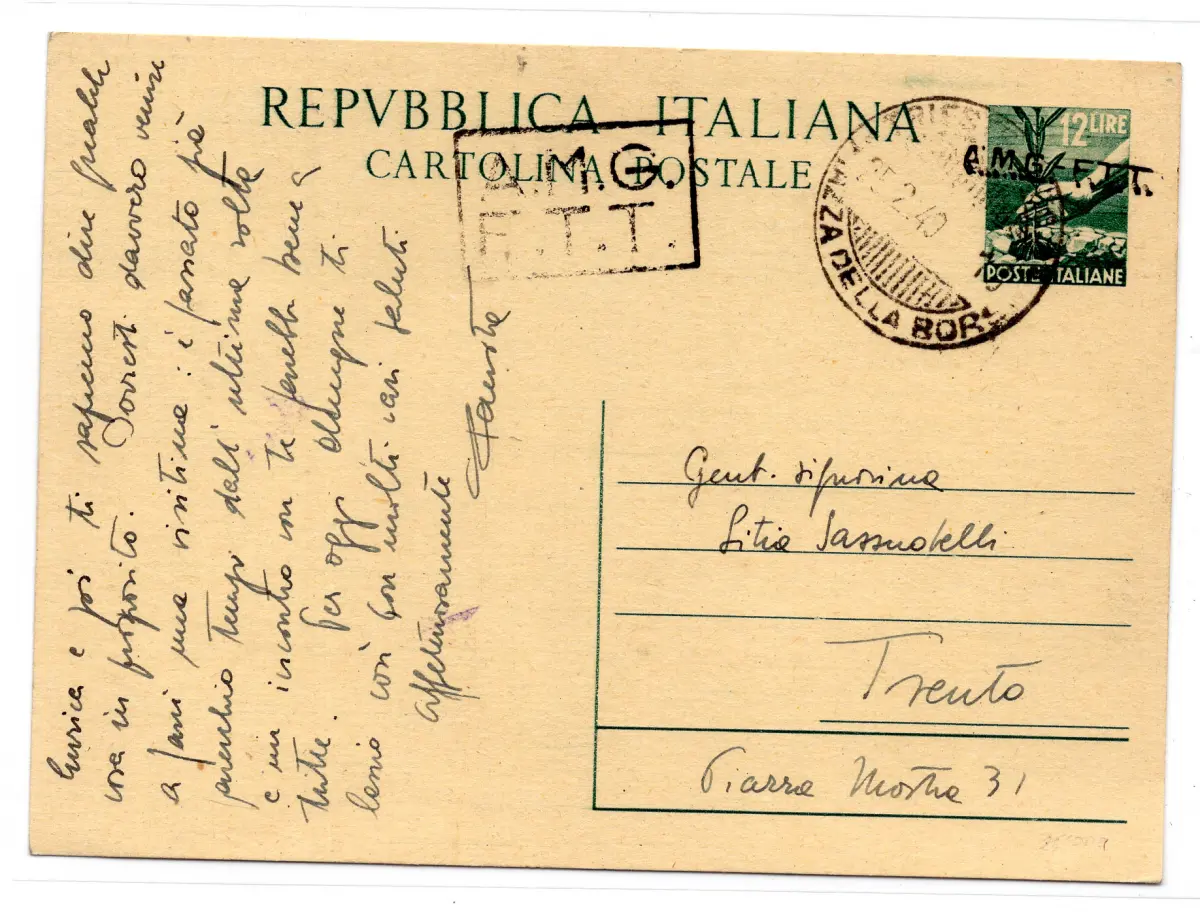 REPVBBLICA ITALIANA
CARTOLINA POSTALE
A.M.G.
F.T.T.
12 LIRE
A.M.G.-F.T.T.
POSTE ITALIANE
TRIES
25.2.49
ZZA DELLA BORS
Gent. signorina
Sassudelli
Trento
Piazza Mostra 31
e poi ti sapremo dire qualche
cosa in proposito. Dovresti davvero venire
a farci una visitina: è passato già
parecchio tempo dall'ultima volta
e un incontro con te farebbe bene a
tutte. Per oggi dunque ti
lascio così con molti cari saluti
Affettuosamente
Fausta